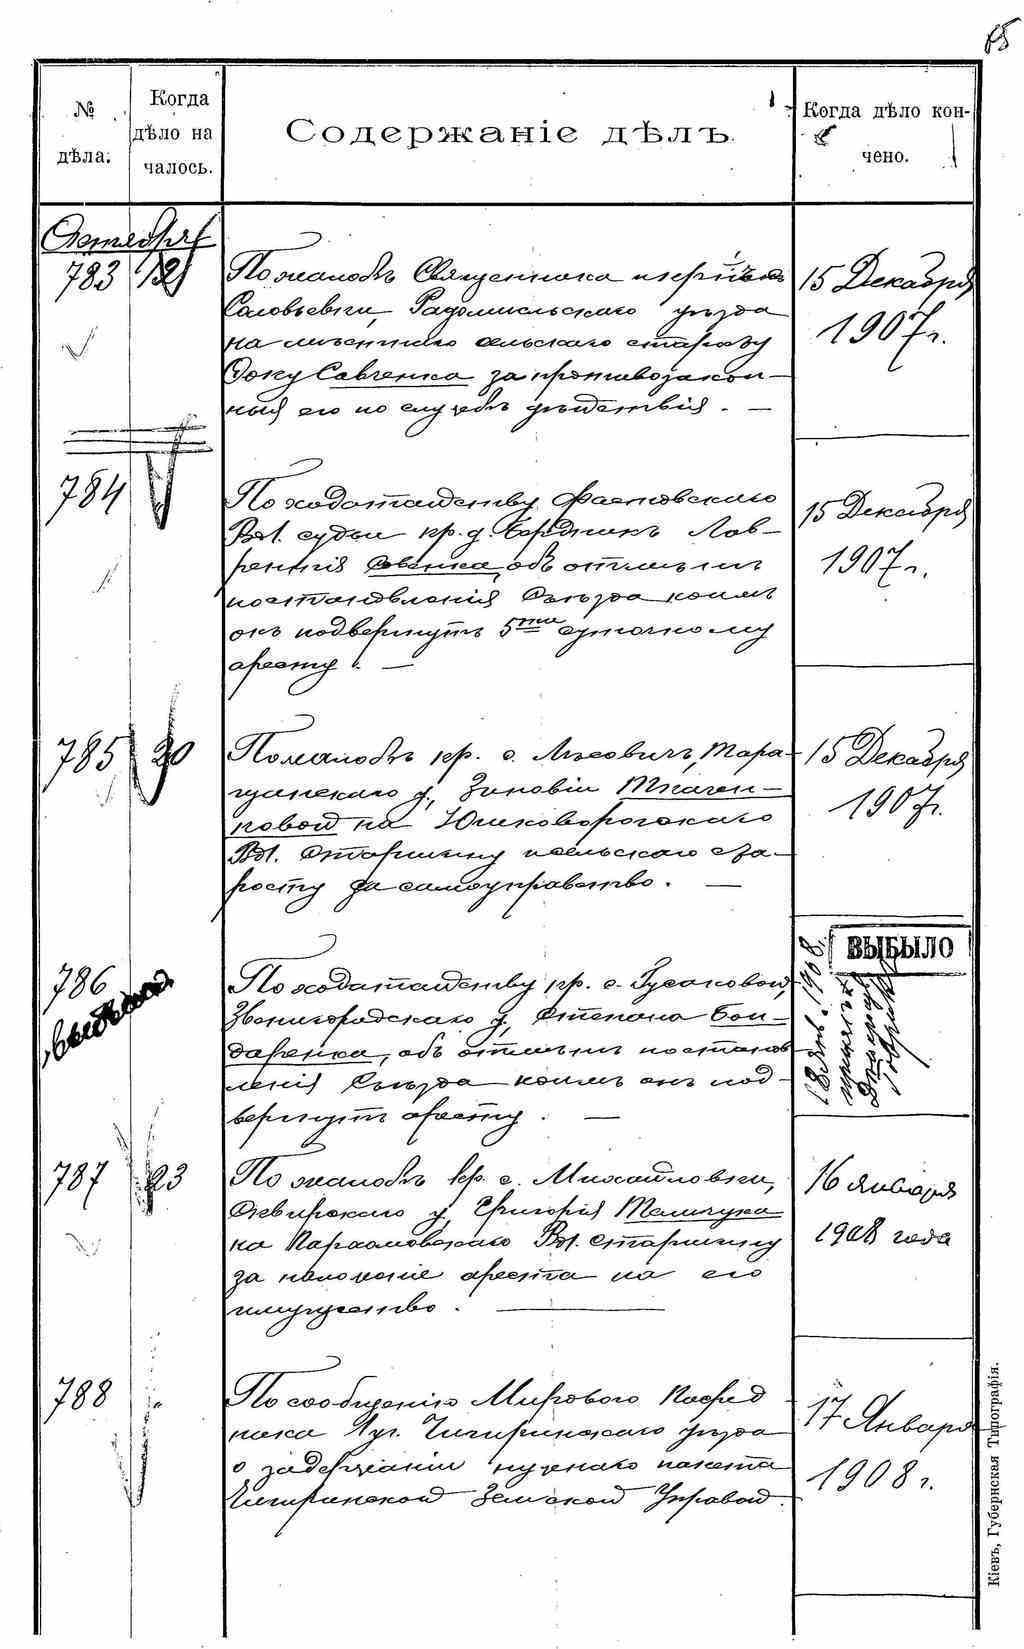 № дѣла.
Когда дѣло на чалось.
Содержаніе дѣлъ.
Когда дѣло кон- чено.
Октября
783
По жалобѣ Священника
Соловьевки, Радомысльскаго уѣзда
на мѣстнаго сельскаго старосту
Фоку Савченка за противозакон-
ныя его по службѣ дѣйствія. —
15 Декабря
1907 г.
784
По ходатайству Фастовскаго
Вол. судьи кр. д. Бордникъ Лав-
рентія об отмѣнѣ
постановленія Съѣзда коимъ
онъ подвергнутъ 5ти суточному
аресту. —
15 Декабря
1907 г.
785 20
По жалобѣ кр. с. Лѣсовичъ, Тара-
щанскаго у., Зиновіи Ткачен-
ковой на Юшковорогскаго
Вол. Старшину и сельскаго ста-
росту за самоуправство. —
15 Декабря
1907 г.
786
По ходатайству кр. с. Гусаковой,
Звенигородскаго у., Степана Бон-
даренка, объ отмѣнѣ постанов
ленія Съѣзда коимъ онъ под-
вергнутъ аресту. —
ВЫБЫЛО
18 Янв. 1908 г.
787 23
По жалобѣ кр. с. Михайловки,
Сквирскаго у. Григорія Мельничука
на Вол. старшину
за наложеніе ареста на его
имущество. —
16 января
1908 года
788
По сообщенію Мироваго Посред
ника 1 уч. Чигиринскаго уѣзда
о задержаніи нужнаго пакета
Чигиринской Земской Управой.
17 Января
1908 г.
Кіевъ, Губернская Типографія.